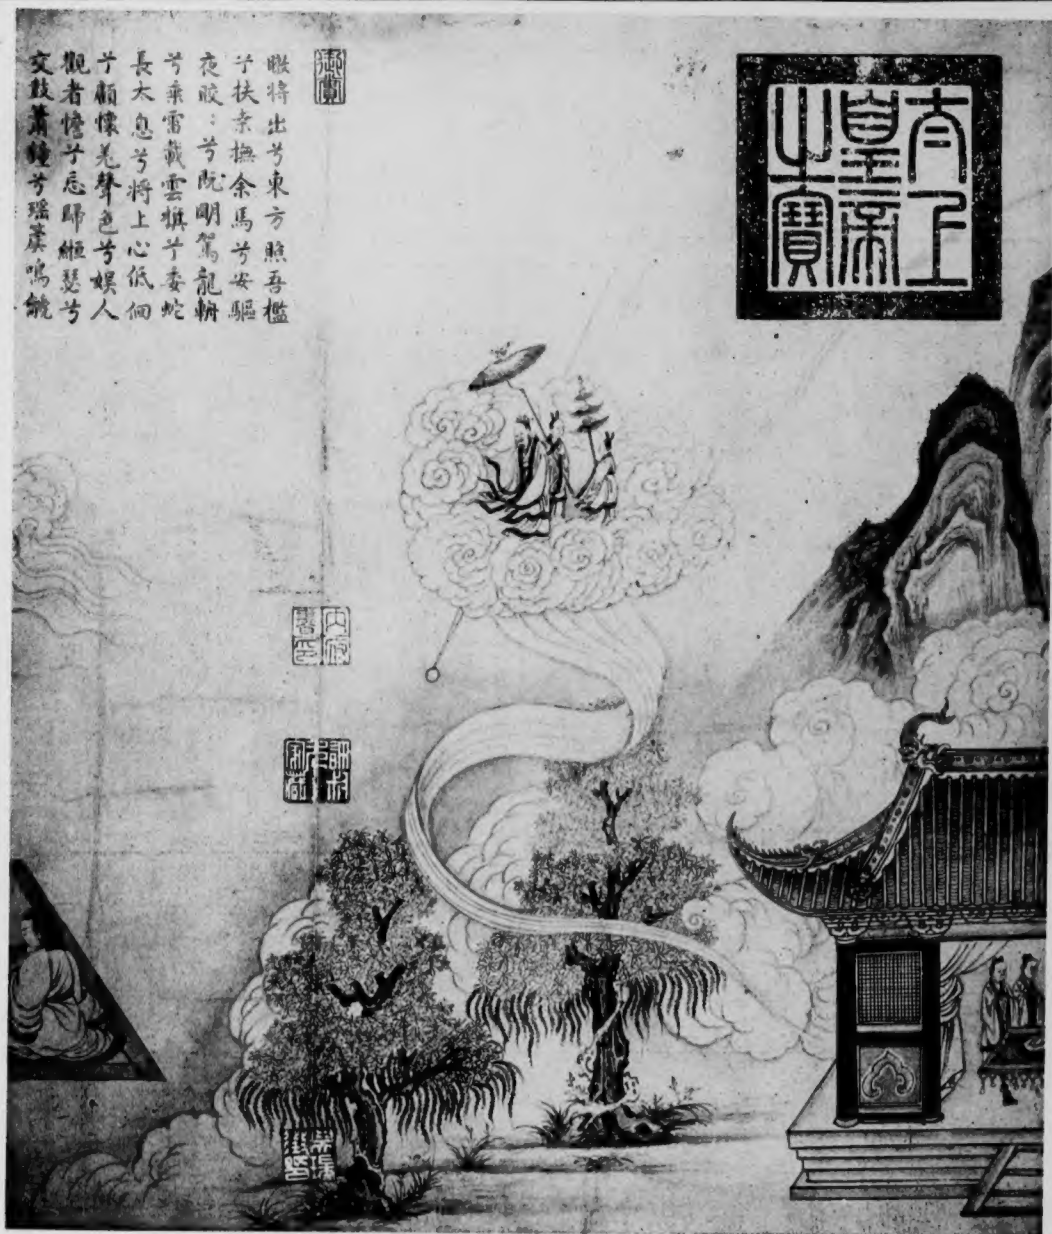 太上
皇帝
之寶
御賞
暾將出兮東方照吾檻
兮扶桒撫余馬兮安驅
夜晈：兮既明駕龍輈
兮乘雷載雲旗兮委蛇
長太息兮將上心低佪
兮顧懷羌聲色兮娛人
觀者憺兮忘歸緪瑟兮
交鼓簫鐘兮瑤簴鳴
內府
書印
家藏